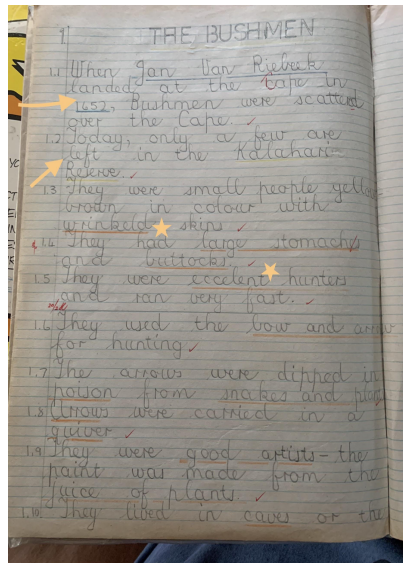 1 THE BUSHMEN
1.1 When Jan Van Riebeek
landed at the Cape in
1652, Bushmen were scatterd
over the Cape.
1.2 Today, only a few are
left in the Kalahari
Reserve.
1.3 They were small people yellow
brown in colour with
wrinkeld skins
1.4 They had large stomachs
and buttocks.
1.5 They were eccelent hunters
and ran very fast.
1.6 They used the bow and arrow
for hunting
1.7 The arrows were dipped in
poison from snakes and plants
1.8 Arrows were carried in a
quiver
1.9 They were good artists - the
paint was made from the
juice of plants
1.10 They lived in caves or the